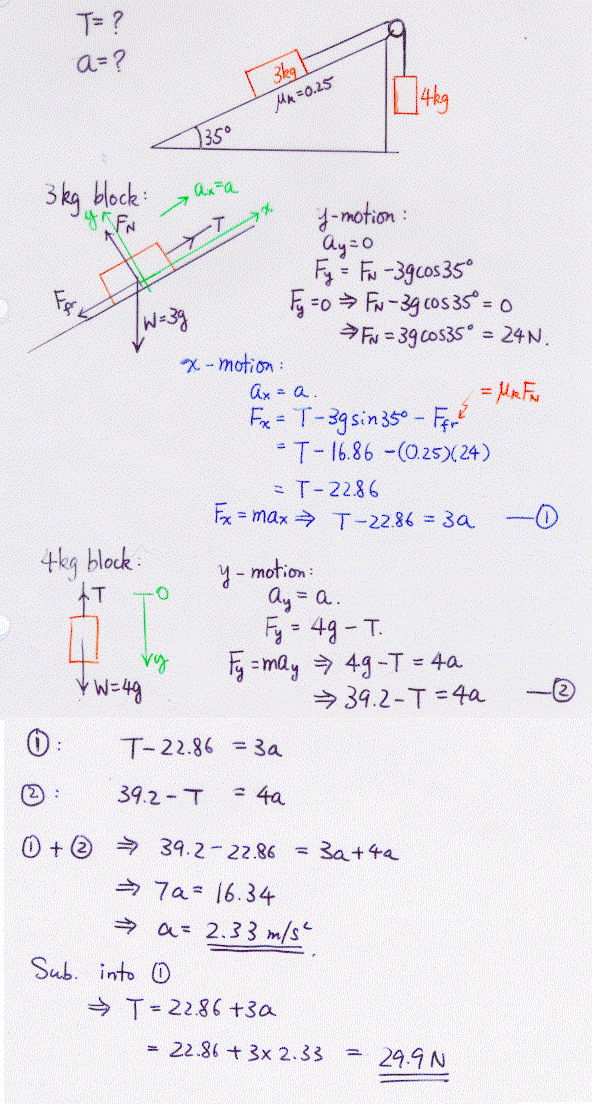 T = ?
a = ?
3kg
μk=0.25
4kg
35°
3kg block:
y
FN
ax=a
x
T
Ffr
W=3g
y-motion:
ay=0
Fy = FN -3gcos35°
Fy=0 ⇒ FN-3gcos35° = 0
⇒FN=3gcos35° = 24N.
x-motion:
ax = a.
= μkFN
Fx = T-3gsin35° - Ffr
= T-16.86 -(0.25)(24)
= T-22.86
Fx = max ⇒ T-22.86 = 3a —①
4kg block:
T
0
y
W=4g
y-motion:
ay = a.
Fy = 4g - T.
Fy=may ⇒ 4g-T = 4a
⇒ 39.2-T = 4a —②
①: T-22.86 = 3a
②: 39.2-T = 4a
①+② ⇒ 39.2-22.86 = 3a+4a
⇒ 7a = 16.34
⇒ a = 2.33 m/s².
Sub. into ①
⇒ T = 22.86 +3a
= 22.86 + 3x 2.33 = 29.9 N